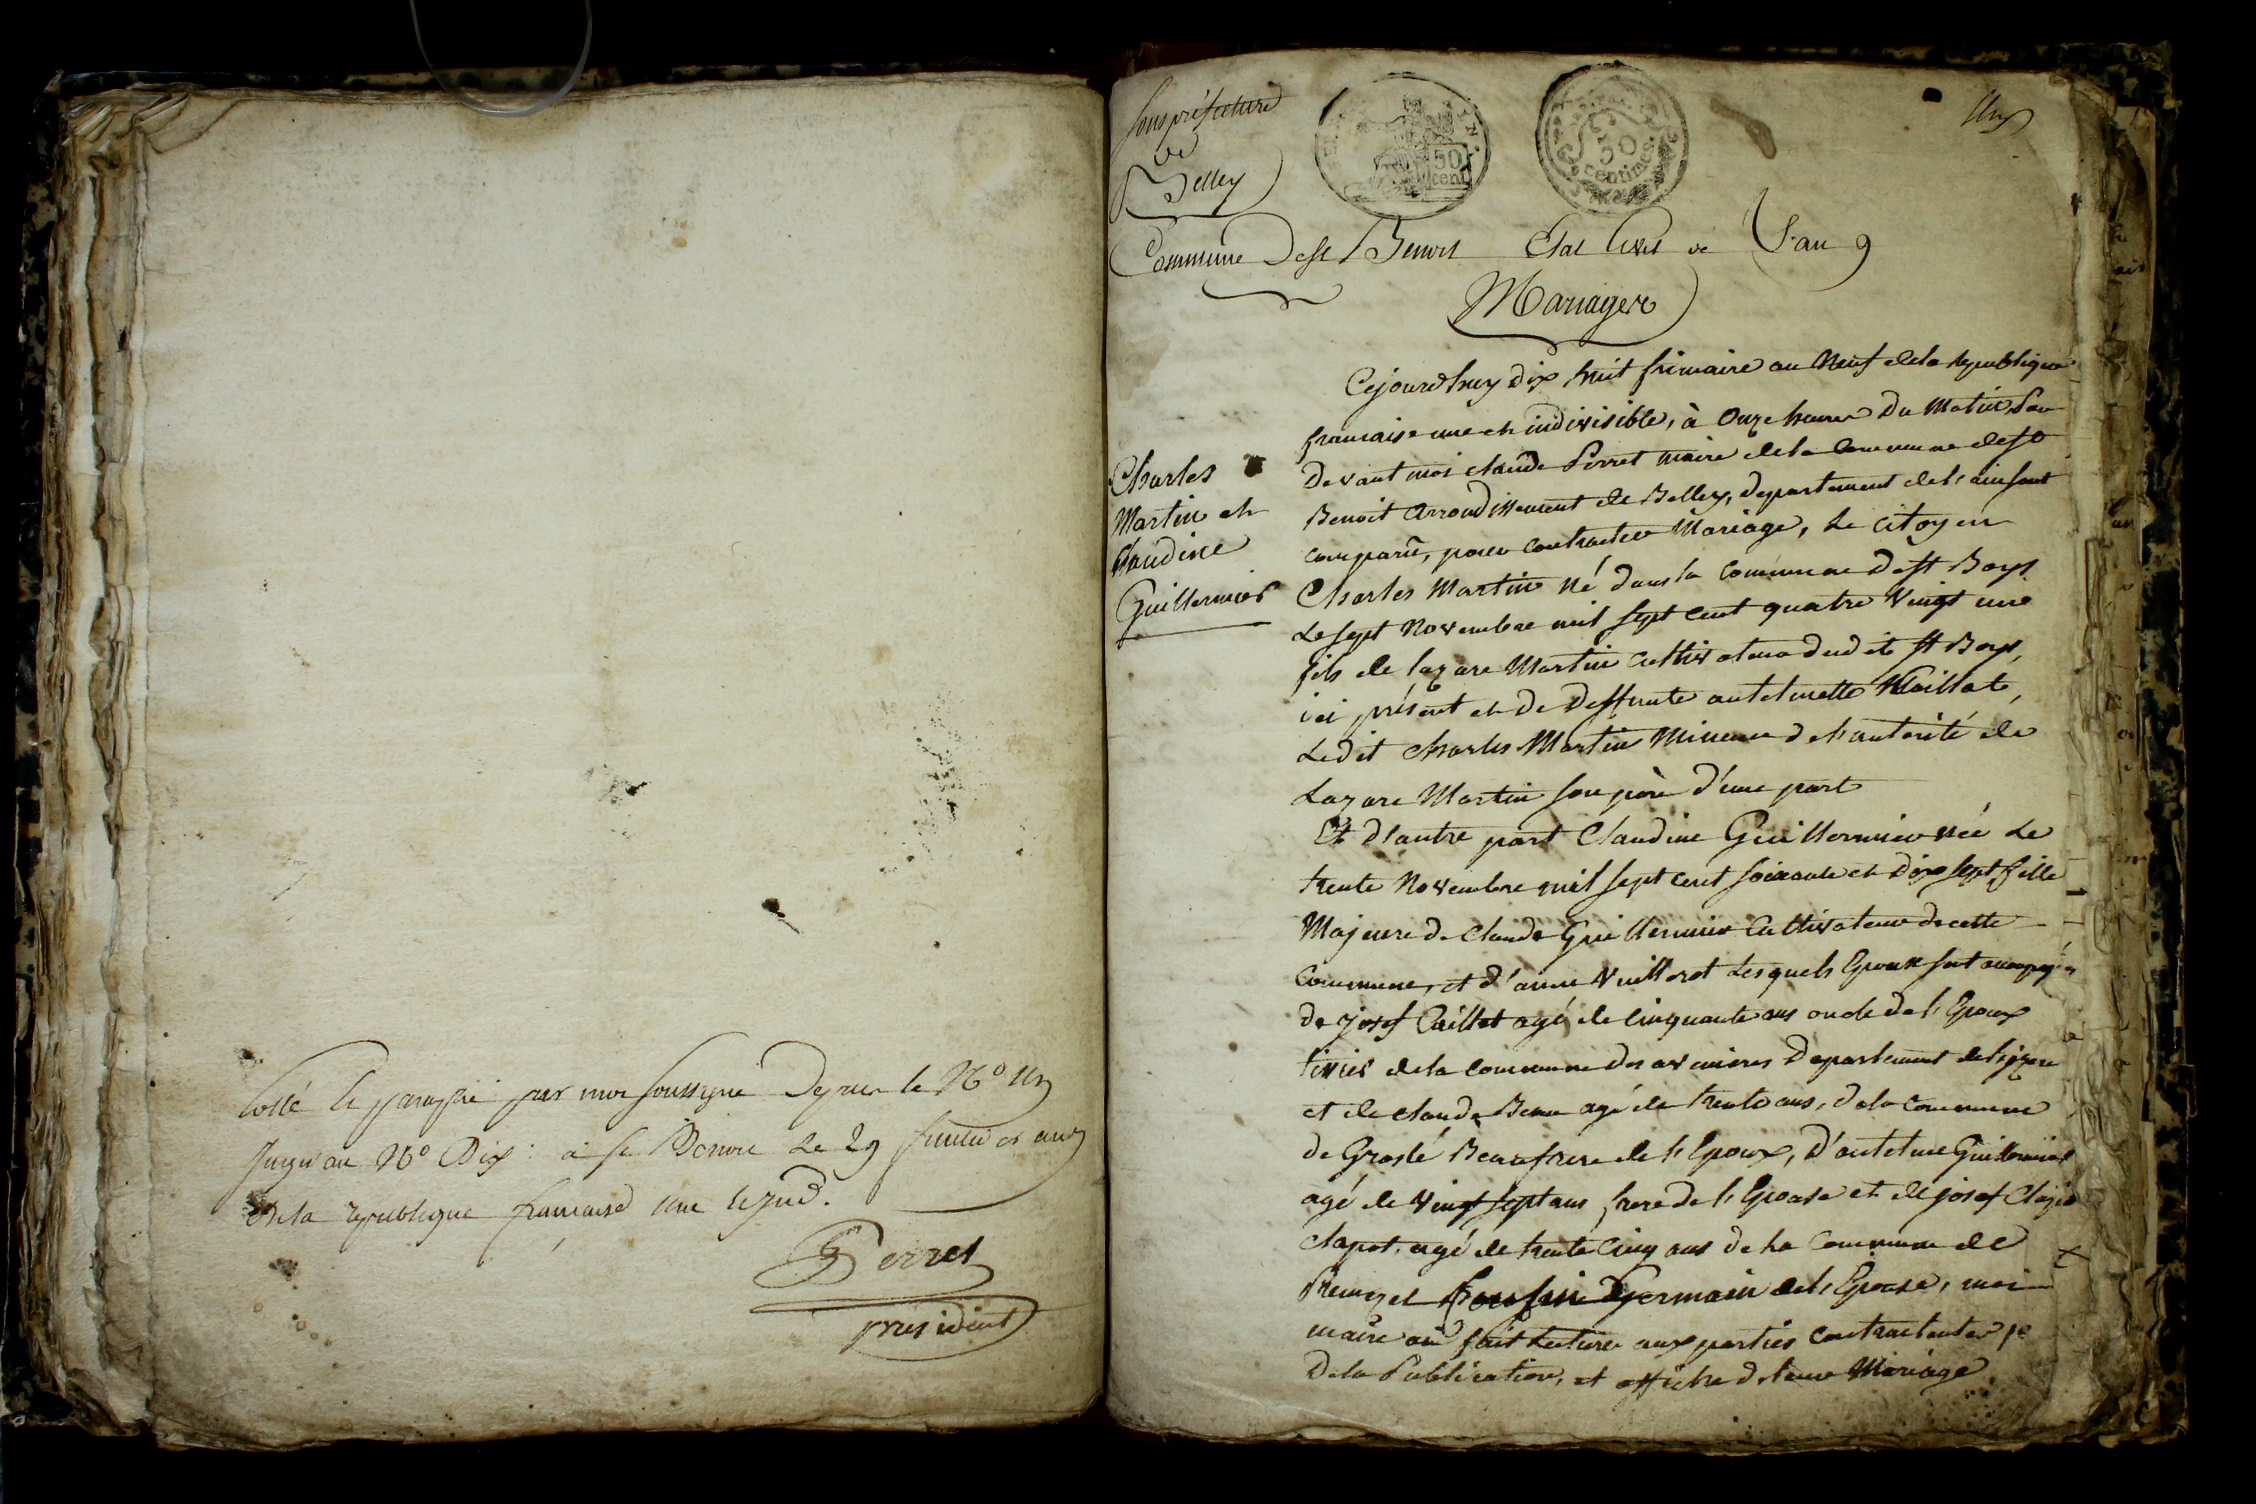 par moi soussigné depuis le N° Un
jusqu'au N° Dix à st Benoit le 29
de la republique française une
Perret
président
Sous préfecture
de
Belley
50
cent
50
centimes
Un
Commune de st Benoit Etat Civil de L'an 9
Mariages
Charles
Martin et
Claudine
Guillermier
Cejourdhuy dix huit frimaire an Neuf de la republique
francaise une et indivisible, à Onze heures du Matin, Par
devant moi claude Perret maire de la commune de st
Benoit arrondissement de Belley, departement de l'ain sont
comparu, pour contracter Mariage, Le citoyen
Charles Martin né dans la commune de st Boys
Le sept Novembre mil sept cent quatre vingt une
fils de lazare Martin cultivateur dudit st Boys,
ici présent et de deffunte anthelmette
Ledit charles Martin Mineur de l'autorité de
Lazare Martin son père d'une part
Et d'autre part Claudine Guillermier née Le
trente Novembre mil sept cent soixante et dix sept fille
Majeure de claude Guillermier Cultivateur de cette
commune, et d'anne Vuillerot Lesquels Epoux sont accompagnés
de josef Caillat agé de cinquante ans oncle de l'Epoux
de la commune des avenieres Departement de l'izere
et de claude agé de trente ans, de la commune
de Groslé Beaufrere de l'Epoux, d'antelme Guillermier
agé de vingt sept ans frere de l'Epouse et de josef
clapot, agé de trente cinq ans de la commune de
Premeyzel Cousin Germain de l'Epouse, moi
maire ai fait Lecture aux parties contractantes 1°
De la Publication, et affiche de leur Mariage